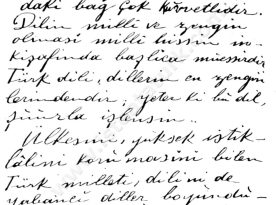 daki bağ çok kuvvetlidir.
Dilin milli ve zengin
olması milli hissin in-
kişafında başlıca müessirdir.
Türk dili, dillerin en zengin
lerindendir; yeter ki bu dil,
şuurla işlensin.
Ülkesini, yüksek istik-
lâlini korumasını bilen
Türk milleti, dilini de
yabancı diller boyundu-